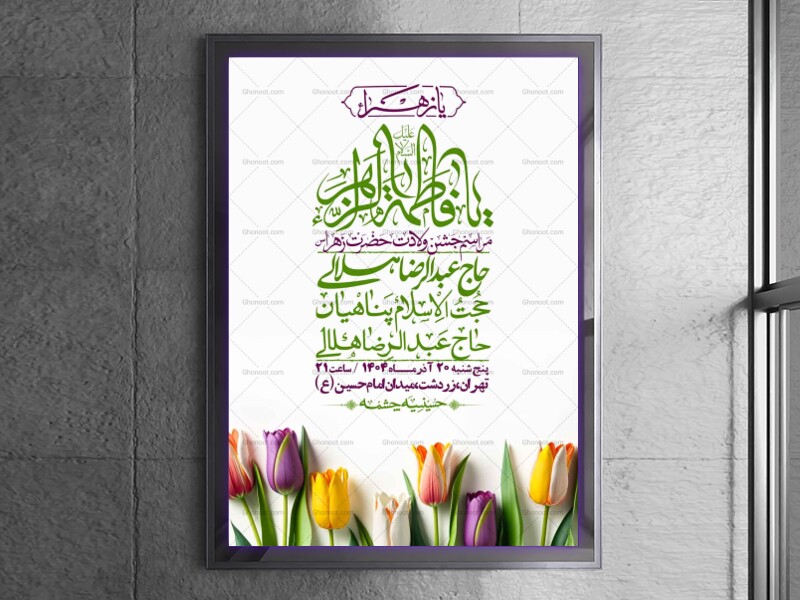 یا زهراء
علیک السلام
یا فاطمة الزهراء
مراسم جشن ولادت حضرت زهرا س
حاج عبدالرضا هلالی
حجت الاسلام پناهیان
حاج عبدالرضا هلالی
پنج شنبه ۲۰ آذر مــاه ۱۴۰۴ / ساعت ۲۱
تهران، زردشت، میدان امام حسین (ع)
حسینیه چشمه
Ghonoot.com